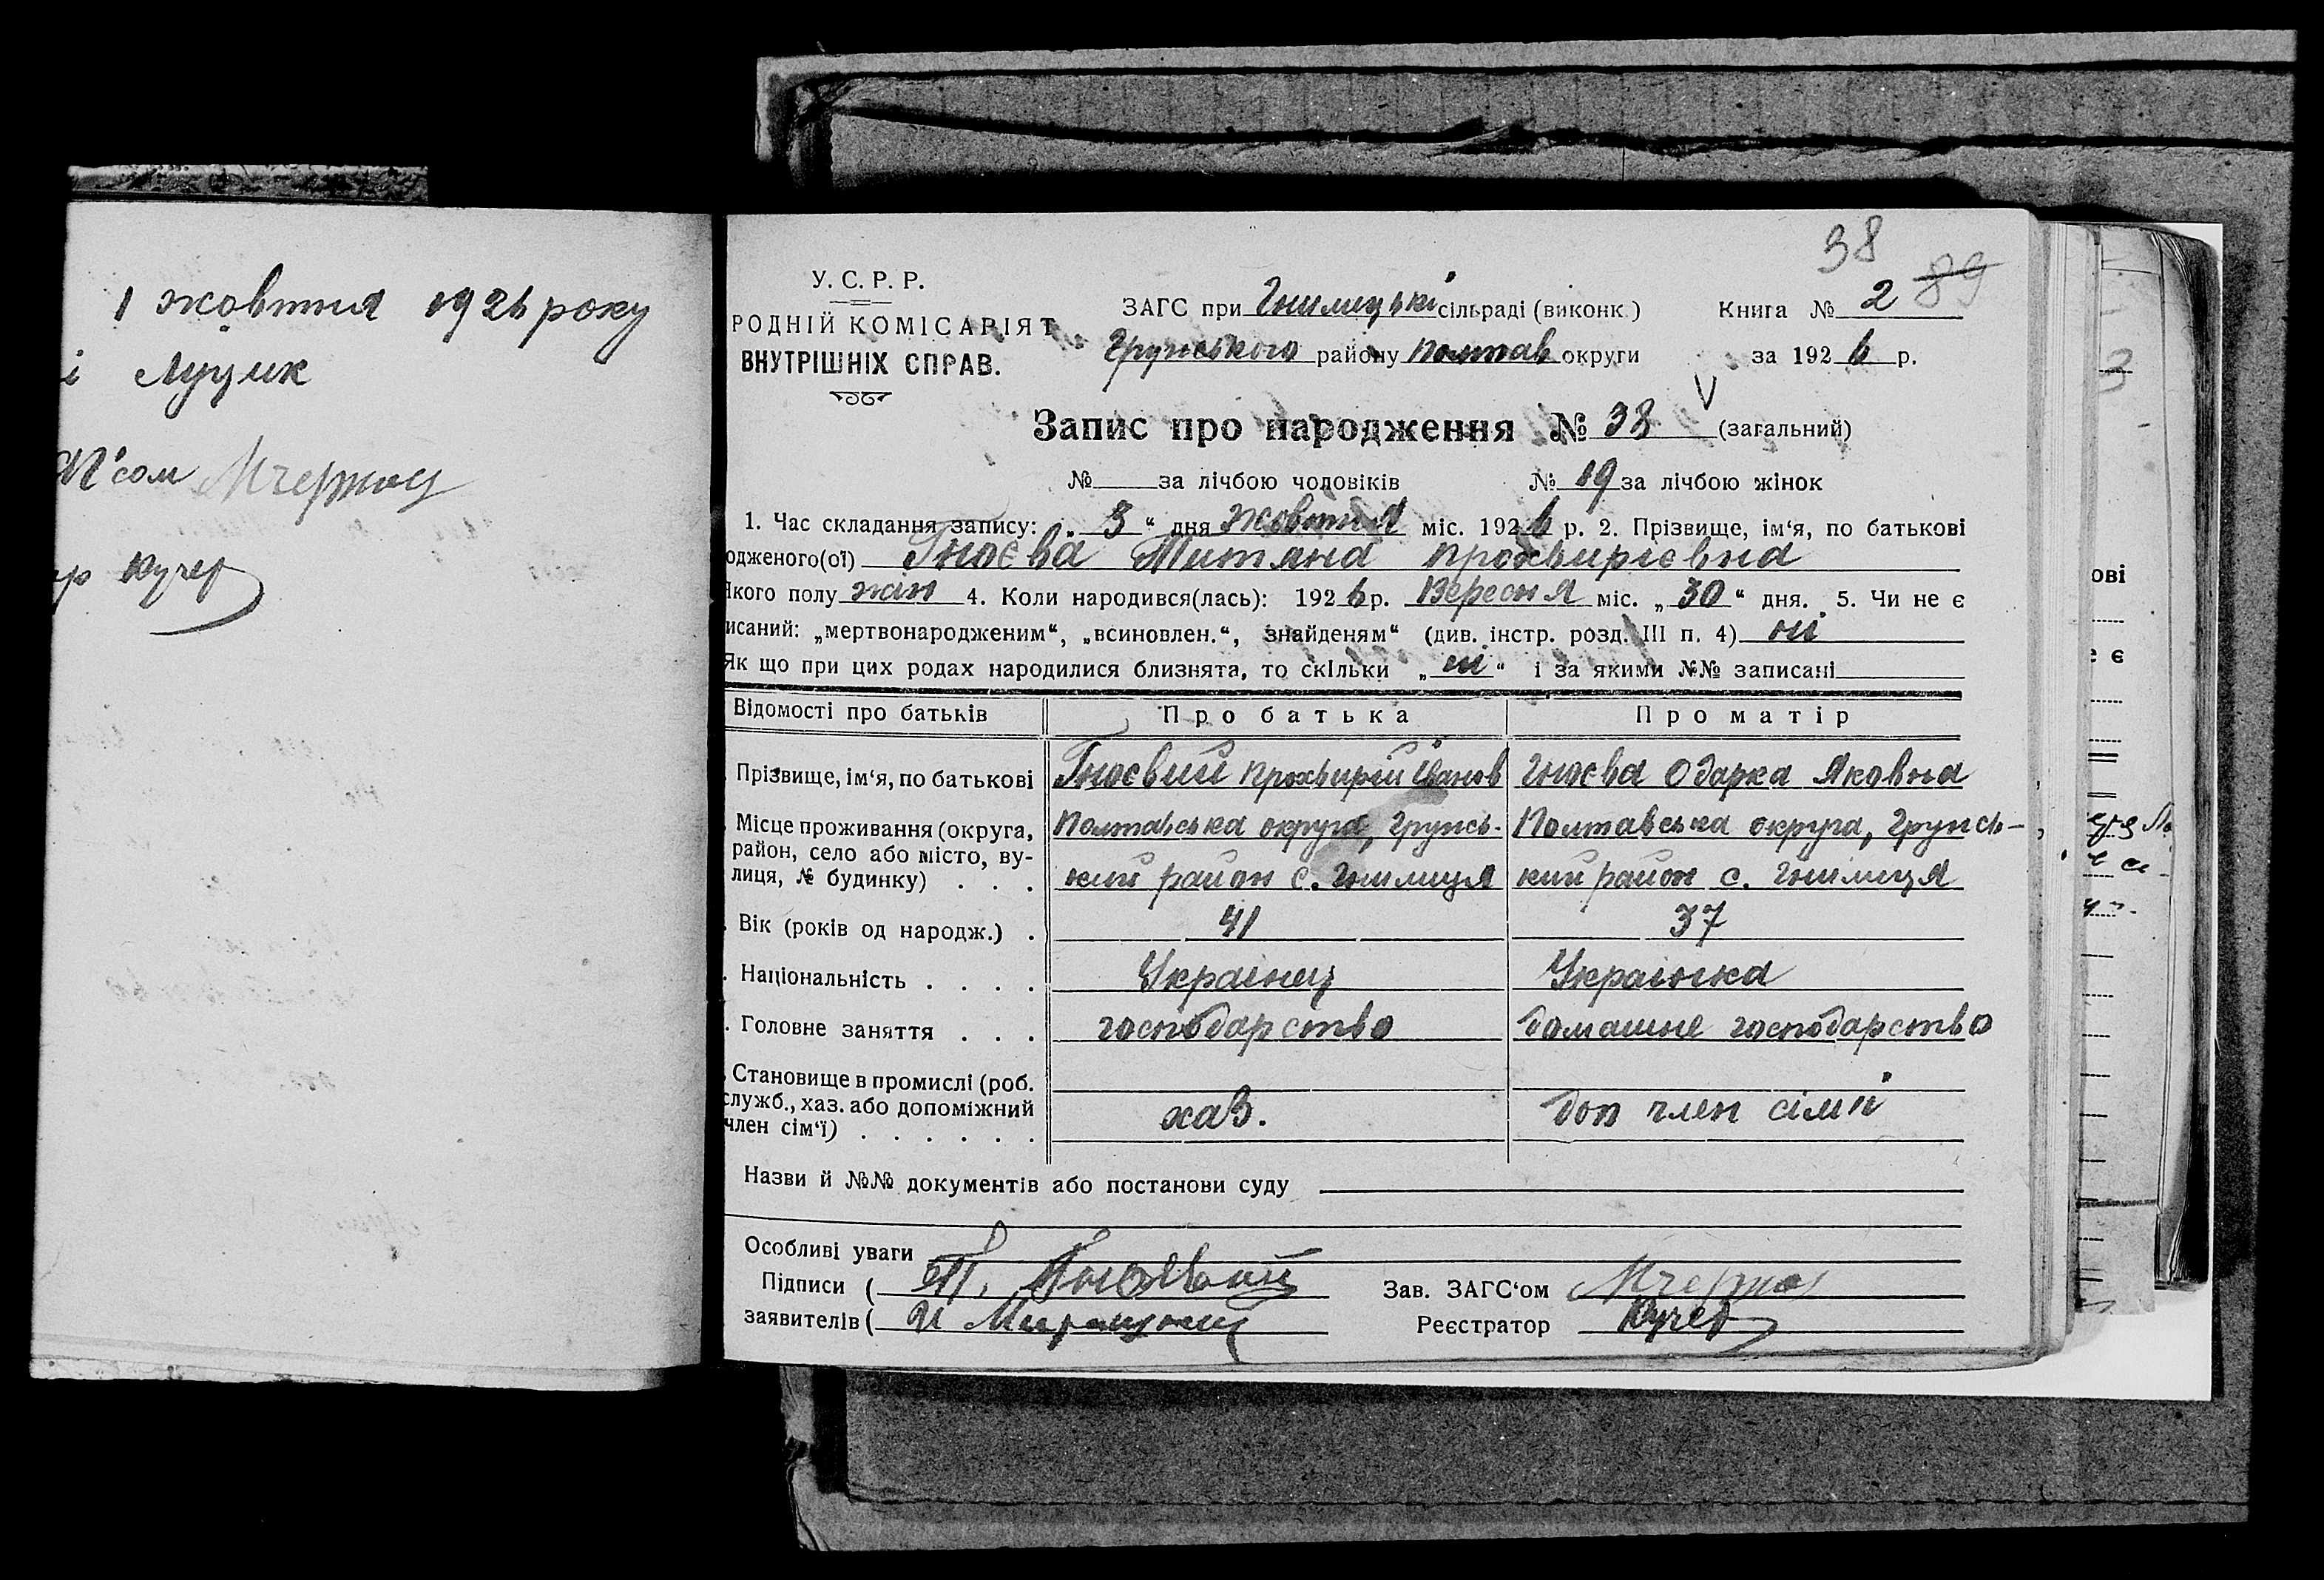 1 жовтня 1926 року
і Луцик
сом
Кучер
38
У. С. Р. Р.
РОДНІЙ КОМІСАРІЯТ
ВНУТРІШНІХ СПРАВ.
ЗАГС при Гнилицькі сільраді (виконк.)
Грунського району Полтав округи
Книга № 2 89
за 1926 р.
Запис про народження № 38 (загальний)
№ за лічбою чоловіків № 19 за лічбою жінок
1. Час складання запису: „ 3 “ дня Жовтня міс. 1926 р. 2. Прізвище, ім‘я, по батькові
одженого(ої) Гноєва Титяна Прохвирієвна
Якого полу жін 4. Коли народився(лась): 1926 р. Вересня міс. „ 30 “ дня. 5. Чи не є
исаний: „мертвонародженим“, „всиновлен.“, знайденям“ (див. інстр. розд. III п. 4) ні
Як що при цих родах народилися близнята, то скільки „ ні “ і за якими №№ записані
Відомості про батьків Про батька Про матір
Прізвище, ім‘я, по батькові Гноєвий Прохвирій Іванов Гноєва Одарка Яковна
Місце проживання (округа, Полтавська округа, Грунсь- Полтавська округа, Грунсь-
район, село або місто, ву-
лиця, № будинку) . . . кий район с. Гнилиця кий район с. Гнилиця
Вік (років од народж.) . 41 37
Національність . . . . Українец Українка
Головне заняття . . . господарство домашне господарство
Становище в промислі (роб.
служб., хаз. або допоміжний хаз. доп член сімї
член сім‘ї) . . . . . .
Назви й №№ документів або постанови суду
Особливі уваги
Підписи (
Зав. ЗАГС‘ом
заявителів (
Реєстратор Кучер
ові
є